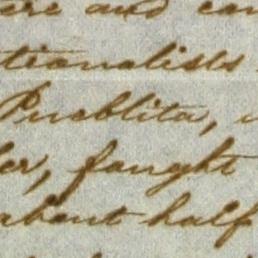 are and can
tionalists
Pueblita,
er, fought
about half